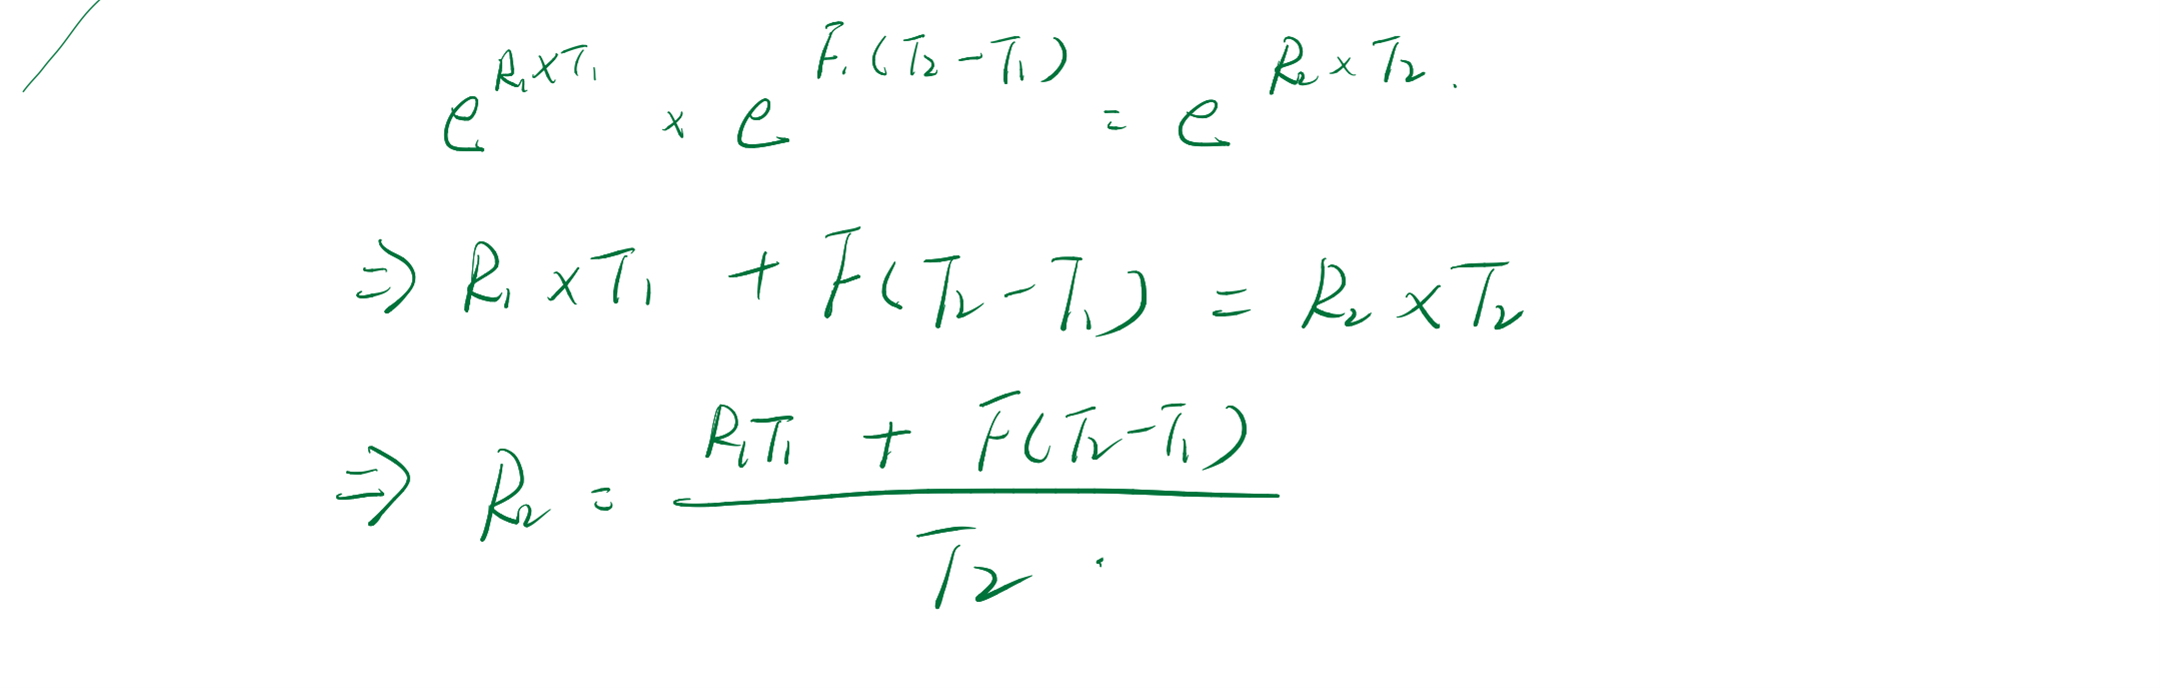 e^{R₁×T₁} × e^{F₁(T₂−T₁)} = e^{R₂×T₂}.
⇒ R₁×T₁ + F(T₂−T₁) = R₂×T₂
⇒ R₂ = \frac{R₁T₁ + F(T₂−T₁)}{T₂}.